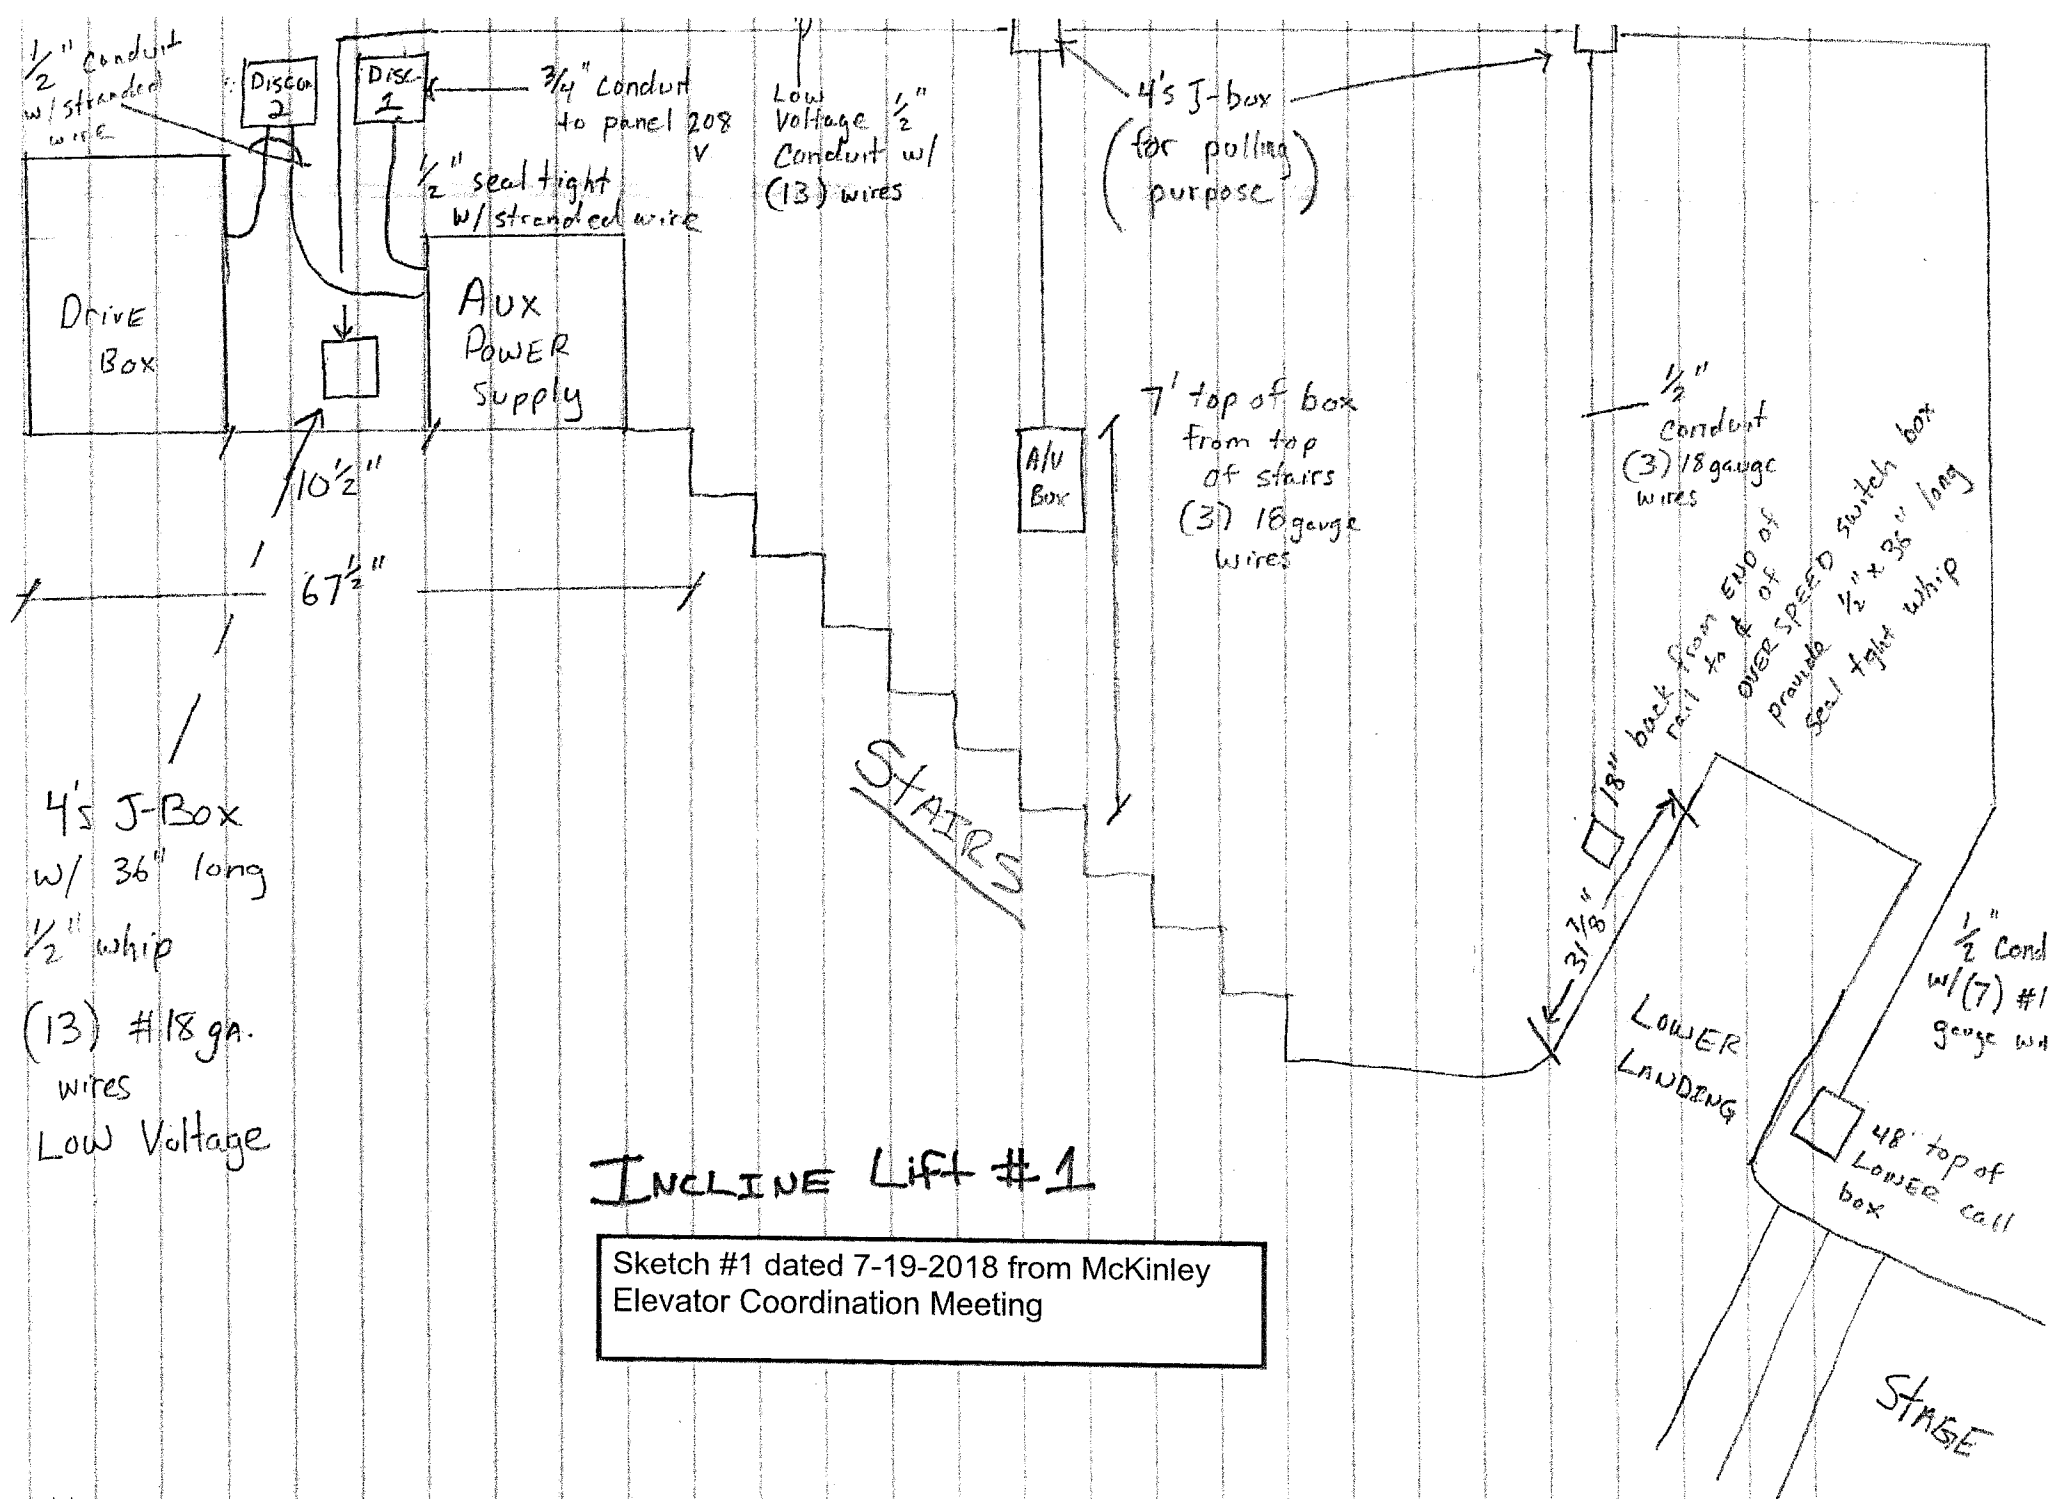 1/2" conduit
w/stranded
wire
Discon
2
Disc
1
3/4" conduit
to panel 208
V
1/2" seal tight
w/stranded wire
Low
Voltage 1/2"
Conduit w/
(13) wires
4's J-box
(for pulling
purpose)
Drive
Box
Aux
Power
Supply
10 1/2"
67 1/2"
A/V
Box
7' top of box
from top
of stairs
(3) 18 gauge
wires
1/2"
conduit
(3) 18 gauge
wires
18" back from END of
rail to ℄ of
OVER SPEED switch box
provide 1/2" x 36" long
seal tight whip
31 7/8"
STAIRS
4's J-Box
w/ 36" long
1/2" whip
(13) #18 ga.
wires
Low Voltage
LOWER
LANDING
1/2" Cond
w/(7) #1
gauge
48" top of
LOWER call
box
STAGE
INCLINE Lift #1
Sketch #1 dated 7-19-2018 from McKinley
Elevator Coordination Meeting